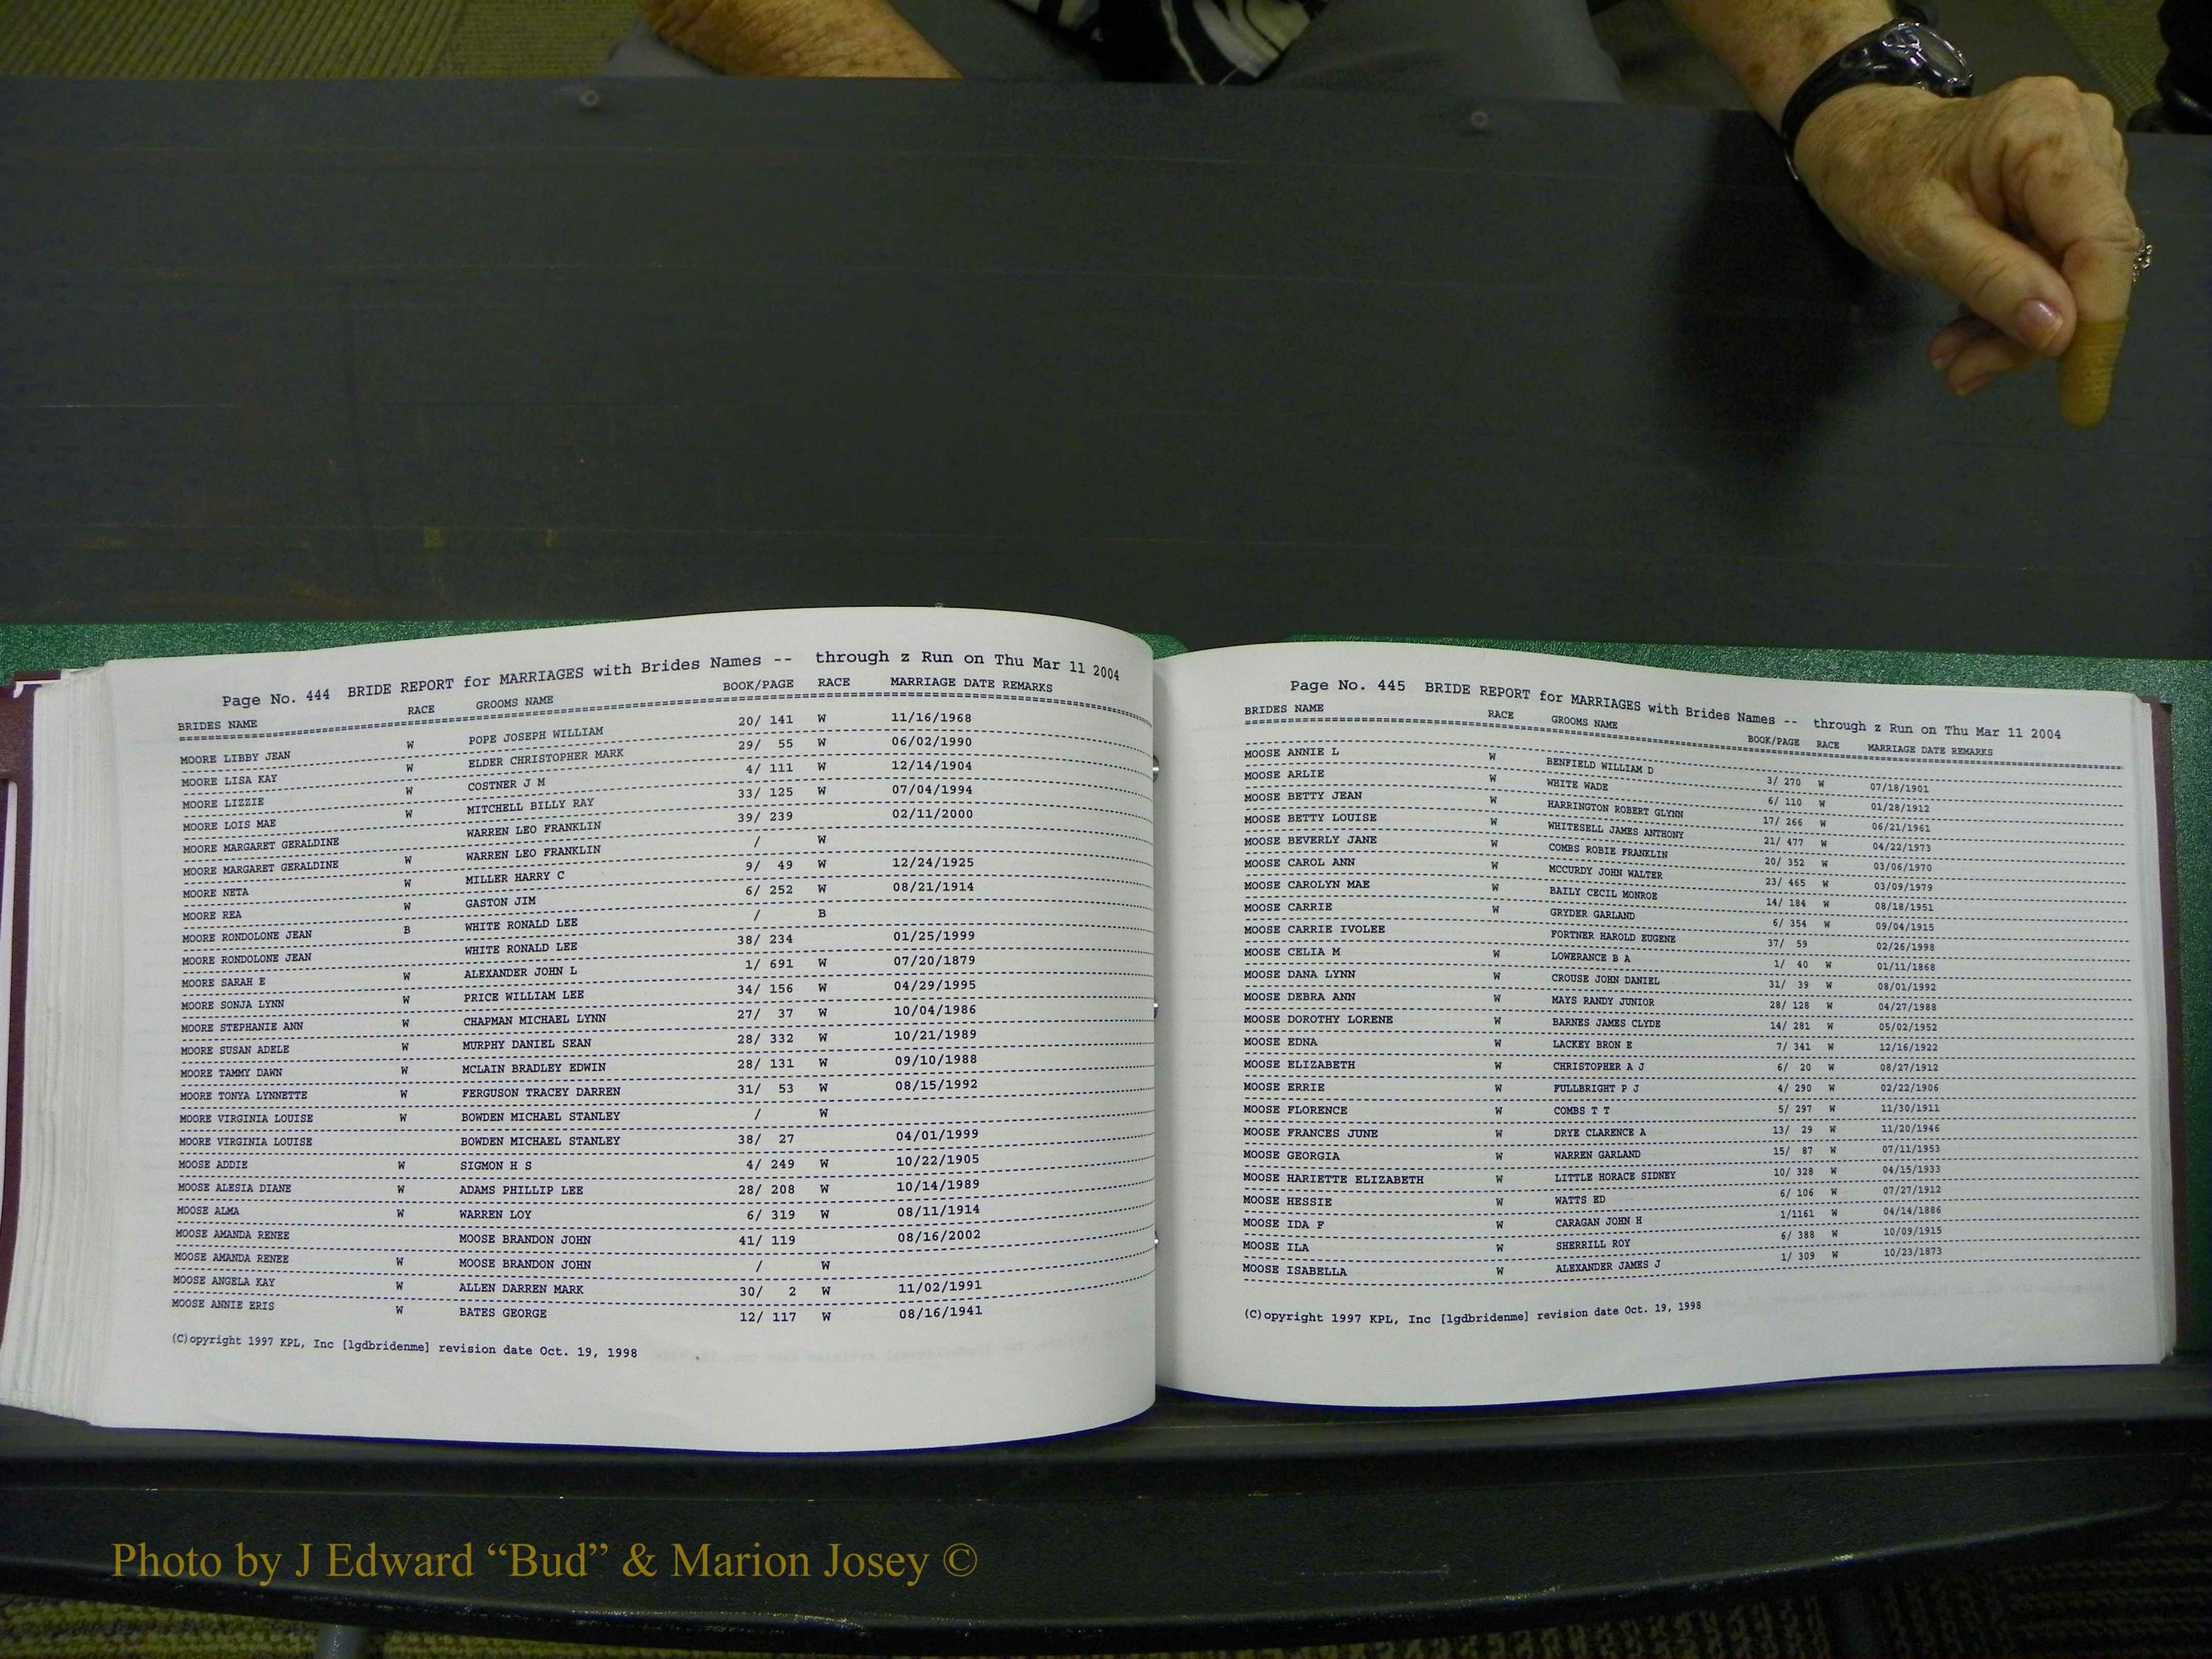 Page No. 444 BRIDE REPORT for MARRIAGES with Brides Names -- through z Run on Thu Mar 11 2004
BRIDES NAME RACE GROOMS NAME BOOK/PAGE RACE MARRIAGE DATE REMARKS
MOORE LIBBY JEAN W POPE JOSEPH WILLIAM 20/ 141 W 11/16/1968
MOORE LISA KAY W ELDER CHRISTOPHER MARK 29/ 55 W 06/02/1990
MOORE LIZZIE W COSTNER J M 4/ 111 W 12/14/1904
MOORE LOIS MAE W MITCHELL BILLY RAY 33/ 125 W 07/04/1994
MOORE MARGARET GERALDINE WARREN LEO FRANKLIN 39/ 239 02/11/2000
MOORE MARGARET GERALDINE W WARREN LEO FRANKLIN / W
MOORE NETA W MILLER HARRY C 9/ 49 W 12/24/1925
MOORE REA W GASTON JIM 6/ 252 W 08/21/1914
MOORE RONDOLONE JEAN B WHITE RONALD LEE / B
MOORE RONDOLONE JEAN WHITE RONALD LEE 38/ 234 01/25/1999
MOORE SARAH E W ALEXANDER JOHN L 1/ 691 W 07/20/1879
MOORE SONJA LYNN W PRICE WILLIAM LEE 34/ 156 W 04/29/1995
MOORE STEPHANIE ANN W CHAPMAN MICHAEL LYNN 27/ 37 W 10/04/1986
MOORE SUSAN ADELE W MURPHY DANIEL SEAN 28/ 332 W 10/21/1989
MOORE TAMMY DAWN W MCLAIN BRADLEY EDWIN 28/ 131 W 09/10/1988
MOORE TONYA LYNNETTE W FERGUSON TRACEY DARREN 31/ 53 W 08/15/1992
MOORE VIRGINIA LOUISE W BOWDEN MICHAEL STANLEY / W
MOORE VIRGINIA LOUISE BOWDEN MICHAEL STANLEY 38/ 27 04/01/1999
MOOSE ADDIE W SIGMON H S 4/ 249 W 10/22/1905
MOOSE ALESIA DIANE W ADAMS PHILLIP LEE 28/ 208 W 10/14/1989
MOOSE ALMA W WARREN LOY 6/ 319 W 08/11/1914
MOOSE AMANDA RENEE MOOSE BRANDON JOHN 41/ 119 08/16/2002
MOOSE AMANDA RENEE W MOOSE BRANDON JOHN / W
MOOSE ANGELA KAY W ALLEN DARREN MARK 30/ 2 W 11/02/1991
MOOSE ANNIE ERIS W BATES GEORGE 12/ 117 W 08/16/1941
(C)opyright 1997 KPL, Inc [lgdbridenme] revision date Oct. 19, 1998
Page No. 445 BRIDE REPORT for MARRIAGES with Brides Names -- through z Run on Thu Mar 11 2004
BRIDES NAME RACE GROOMS NAME BOOK/PAGE RACE MARRIAGE DATE REMARKS
MOOSE ANNIE L W BENFIELD WILLIAM D 3/ 270 W 07/18/1901
MOOSE ARLIE W WHITE WADE 6/ 110 W 01/28/1912
MOOSE BETTY JEAN W HARRINGTON ROBERT GLYNN 17/ 266 W 06/21/1961
MOOSE BETTY LOUISE W WHITESELL JAMES ANTHONY 21/ 477 W 04/22/1973
MOOSE BEVERLY JANE W COMBS ROBIE FRANKLIN 20/ 352 W 03/06/1970
MOOSE CAROL ANN W MCCURDY JOHN WALTER 23/ 465 W 03/09/1979
MOOSE CAROLYN MAE W BAILY CECIL MONROE 14/ 184 W 08/18/1951
MOOSE CARRIE W GRYDER GARLAND 6/ 354 W 09/04/1915
MOOSE CARRIE IVOLEE FORTNER HAROLD EUGENE 37/ 59 02/26/1998
MOOSE CELIA M W LOWERANCE B A 1/ 40 W 01/11/1868
MOOSE DANA LYNN W CROUSE JOHN DANIEL 31/ 39 W 08/01/1992
MOOSE DEBRA ANN W MAYS RANDY JUNIOR 28/ 128 W 04/27/1988
MOOSE DOROTHY LORENE W BARNES JAMES CLYDE 14/ 281 W 05/02/1952
MOOSE EDNA W LACKEY BRON E 7/ 341 W 12/16/1922
MOOSE ELIZABETH W CHRISTOPHER A J 6/ 20 W 08/27/1912
MOOSE ERRIE W FULLBRIGHT P J 4/ 290 W 02/22/1906
MOOSE FLORENCE W COMBS T T 5/ 297 W 11/30/1911
MOOSE FRANCES JUNE W DRYE CLARENCE A 13/ 29 W 11/20/1946
MOOSE GEORGIA W WARREN GARLAND 15/ 87 W 07/11/1953
MOOSE HARIETTE ELIZABETH W LITTLE HORACE SIDNEY 10/ 328 W 04/15/1933
MOOSE HESSIE W WATTS ED 6/ 106 W 07/27/1912
MOOSE IDA F W CARAGAN JOHN H 1/1161 W 04/14/1886
MOOSE ILA W SHERRILL ROY 6/ 388 W 10/09/1915
MOOSE ISABELLA W ALEXANDER JAMES J 1/ 309 W 10/23/1873
(C)opyright 1997 KPL, Inc [lgdbridenme] revision date Oct. 19, 1998
Photo by J Edward “Bud” & Marion Josey ©